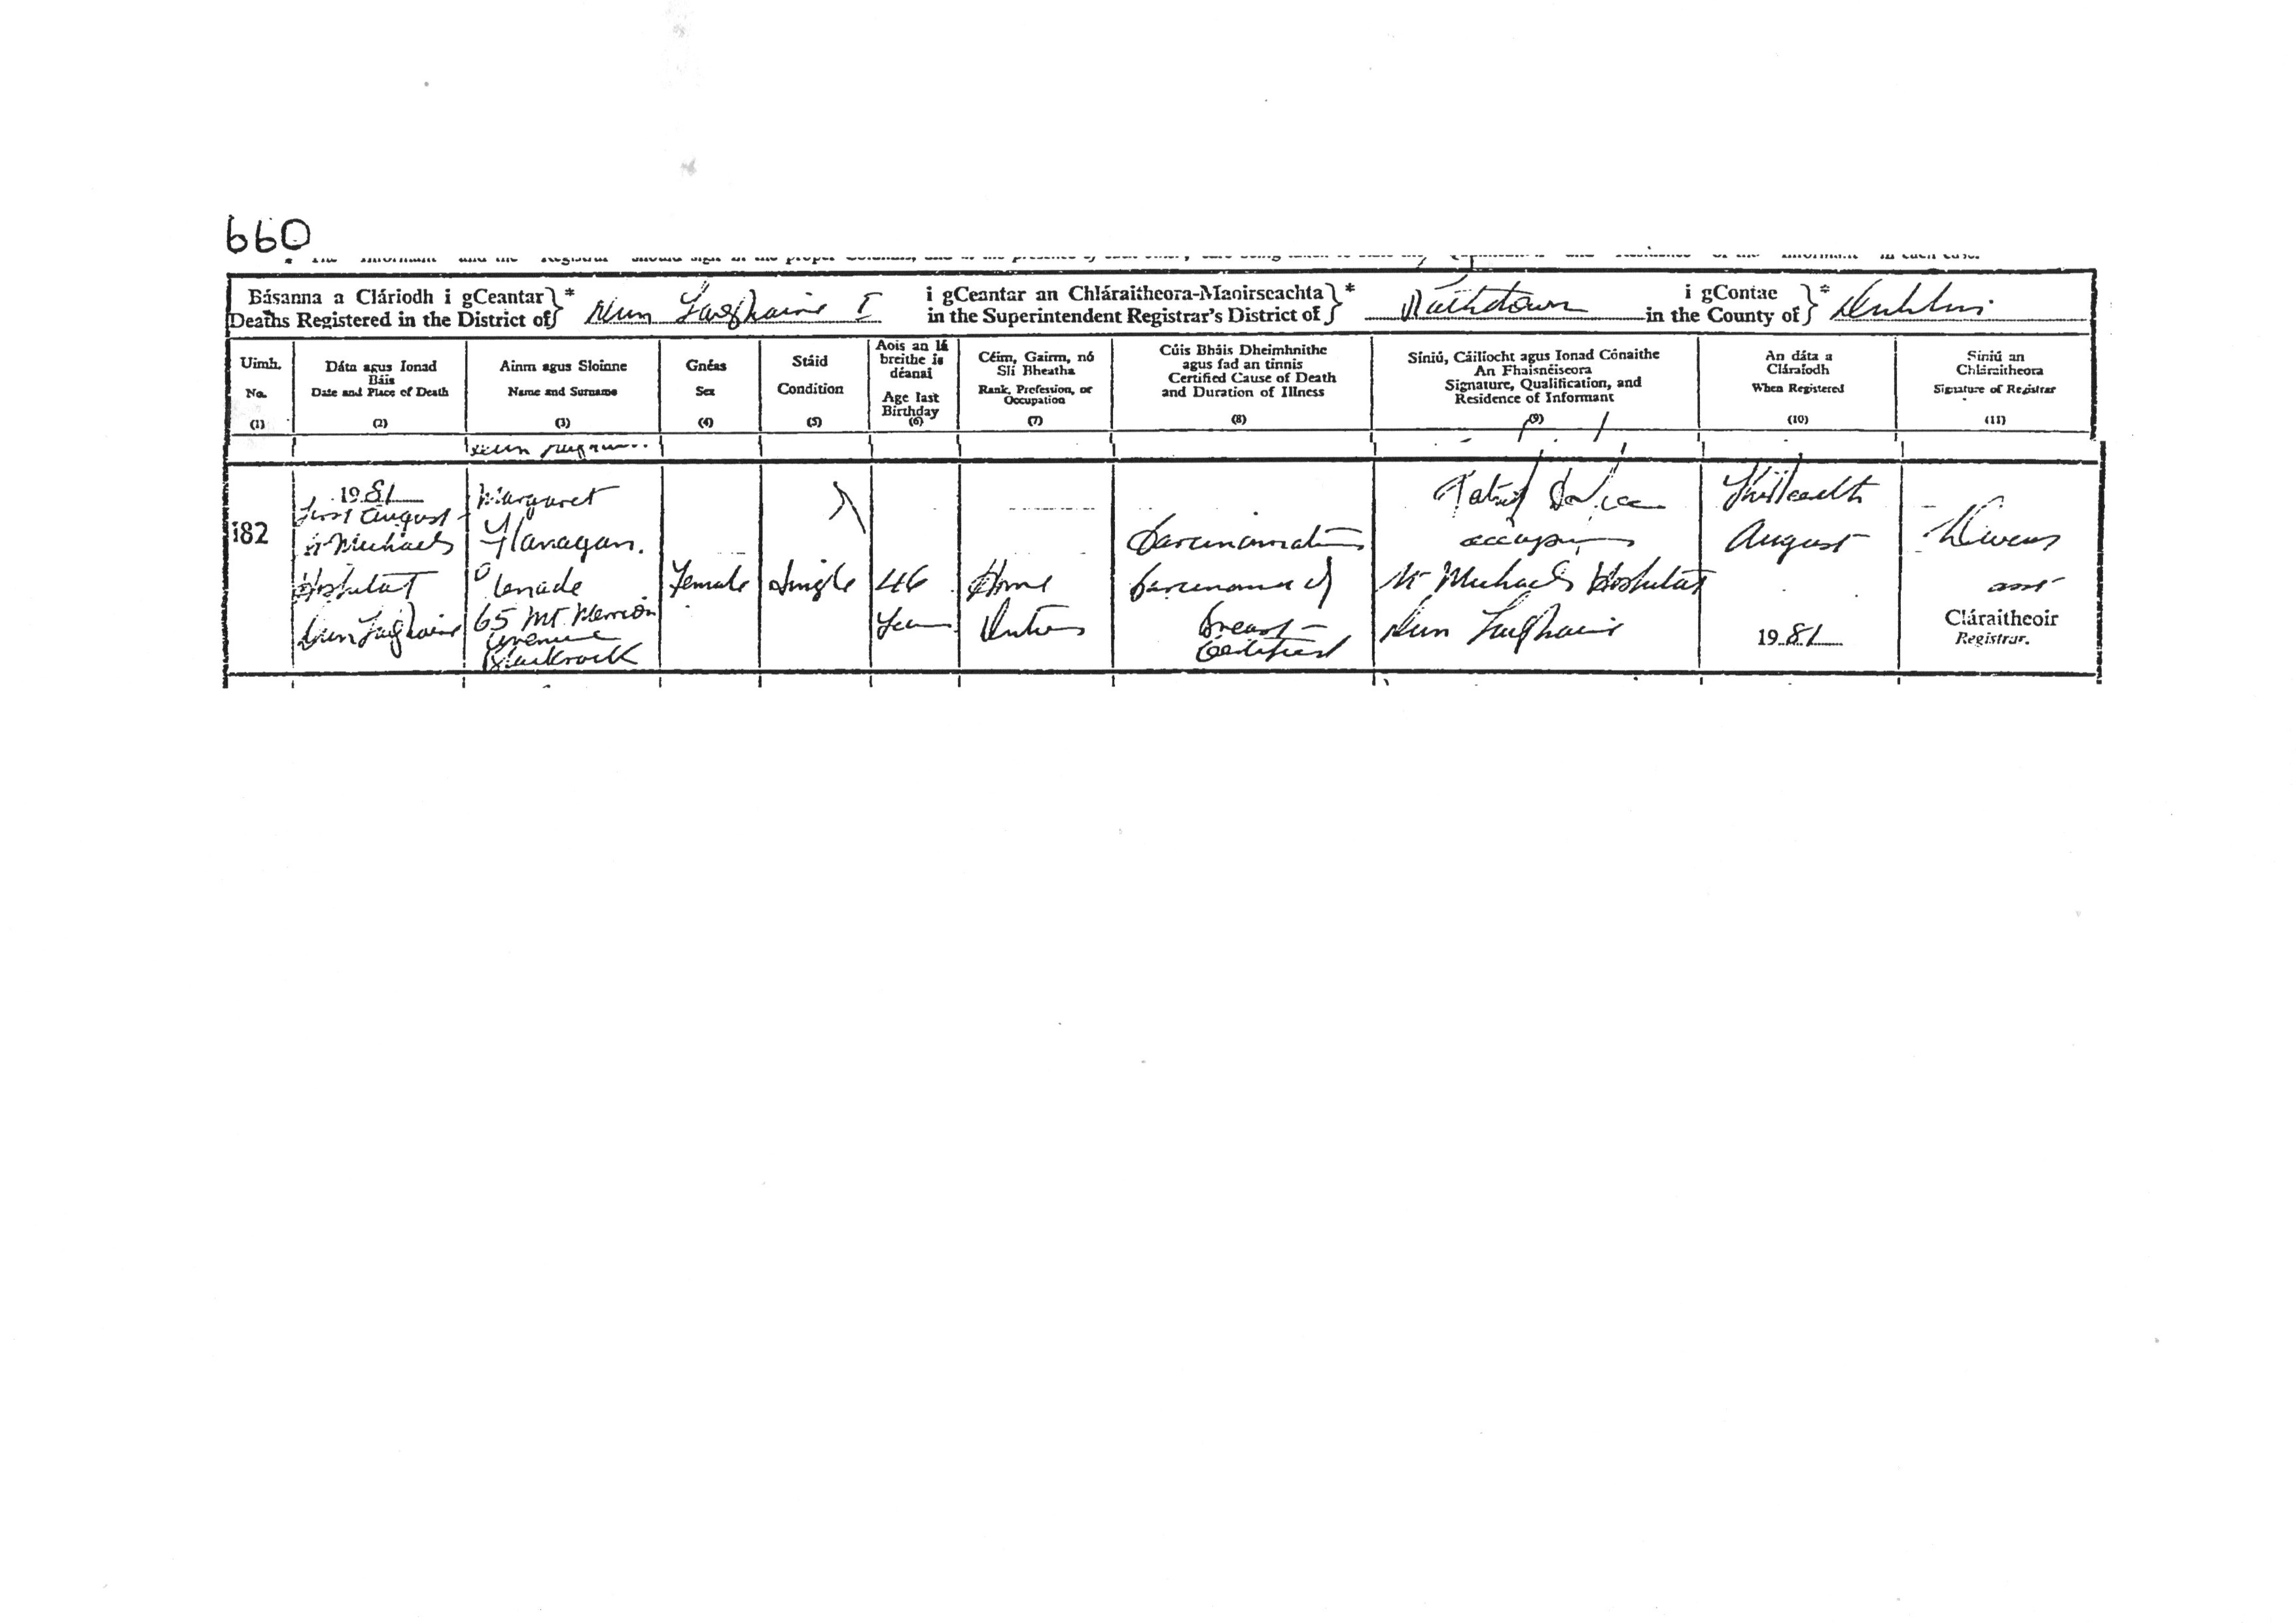 660
Básanna a Cláriodh i gCeantar
Deaths Registered in the District of
* Dun Laoghaire I
i gCeantar an Chláraitheora-Maoirseachta
in the Superintendent Registrar's District of
* Rathdown
i gContae
in the County of
* Dublin
Uimh.
No.
(1)
Dáta agus Ionad
Báis
Date and Place of Death
(2)
Ainm agus Sloinne
Name and Surname
(3)
Gnéas
Sex
(4)
Stáid
Condition
(5)
Aois an lá
breithe is
déanaí
Age last
Birthday
(6)
Céim, Gairm, nó
Slí Bheatha
Rank, Profession, or
Occupation
(7)
Cúis Bháis Dheimhnithe
agus fad an tinnis
Certified Cause of Death
and Duration of Illness
(8)
Síniú, Cáilíocht agus Ionad Cónaithe
An Fhaisnéiseora
Signature, Qualification, and
Residence of Informant
(9)
An dáta a
Cláraíodh
When Registered
(10)
Síniú an
Chláraitheora
Signature of Registrar
(11)
182
1981
First August
St Michaels
Hospital
Dun Laoghaire
Margaret
Flanagan.
65 Mt. Merrion
Avenue
Blackrock
Female
Single
46
Years
Home
Duties
Carcinomatosis
Carcinoma of
Breast
Certified
occupier
St Michaels Hospital
Dun Laoghaire
August
1981
asst
Cláraitheoir
Registrar.